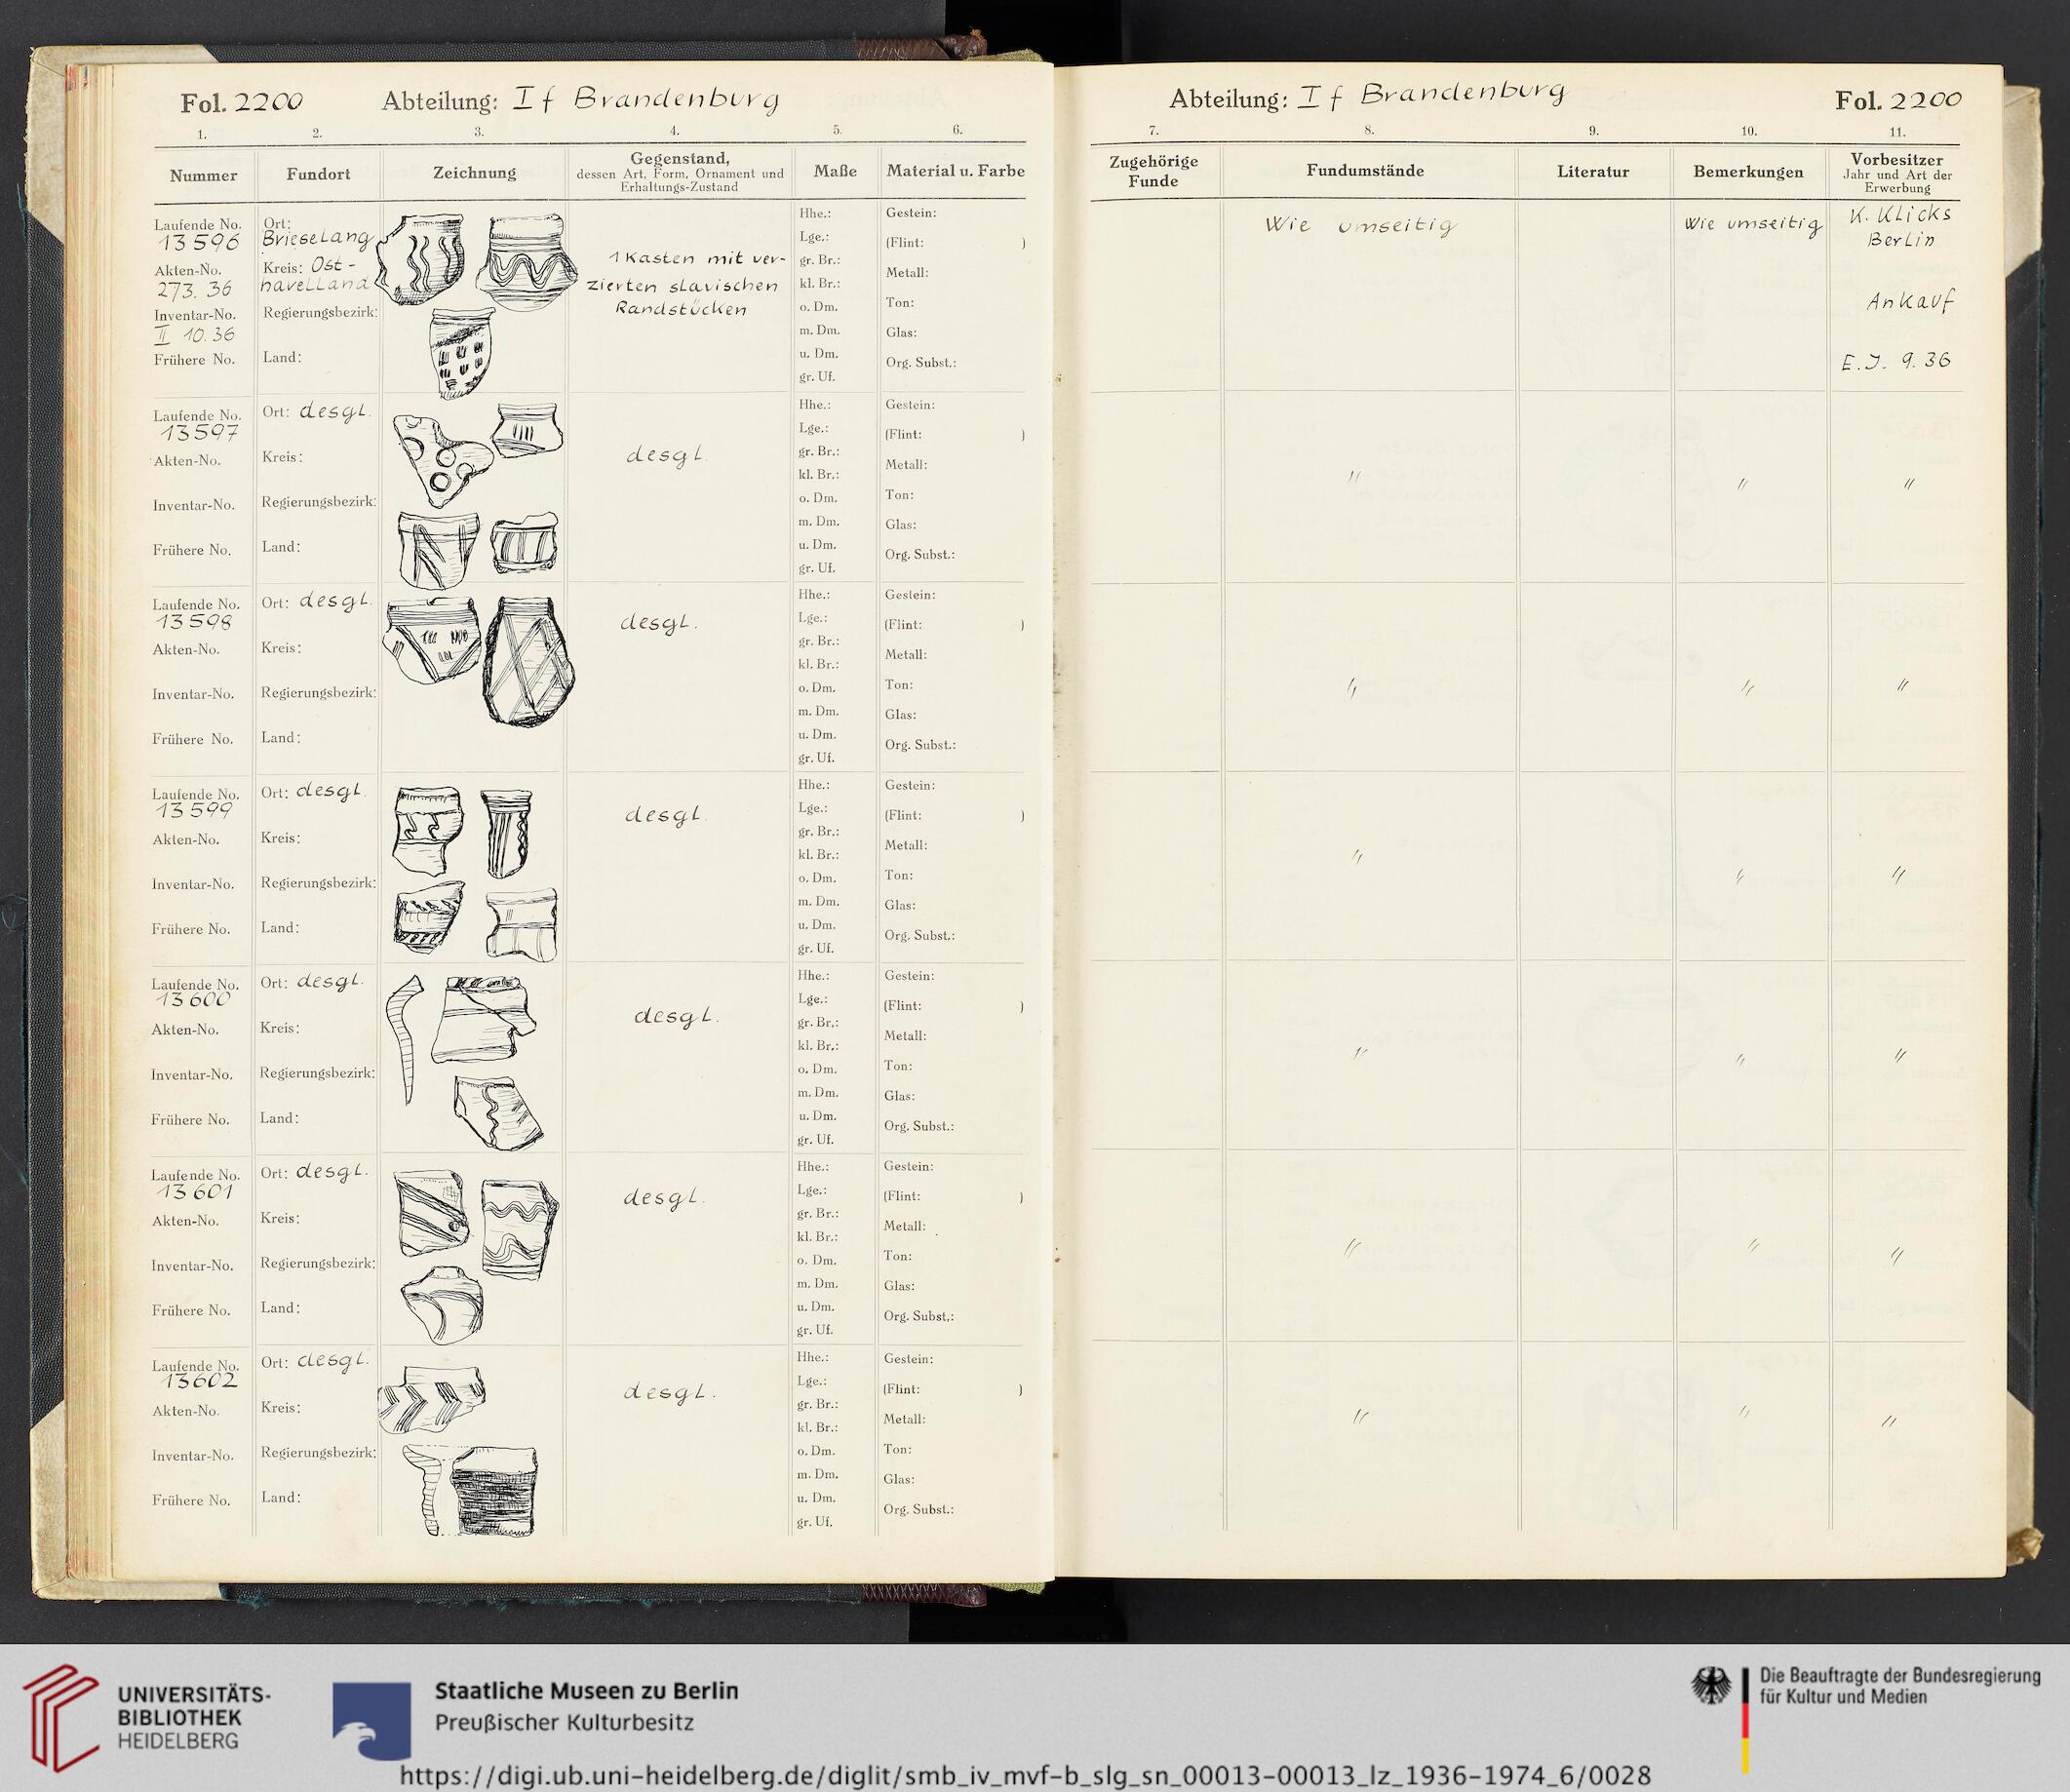 Fol. 2200
Abteilung: I f Brandenburg
1. 2. 3. 4. 5. 6.
Nummer
Fundort
Zeichnung
Gegenstand,
dessen Art, Form, Ornament und
Erhaltungs-Zustand
Maße
Material u. Farbe
Laufende No.
13596
Akten-No.
273. 36
Inventar-No.
II 10.36
Frühere No.
Ort:
Brieselang
Kreis: Ost-
havelland
Regierungsbezirk:
Land:
1 Kasten mit ver-
zierten slavischen
Randstücken
Hhe.:
Lge.:
gr. Br.:
kl. Br.:
o. Dm.
m. Dm.
u. Dm.
gr. Uf.
Gestein:
(Flint: )
Metall:
Ton:
Glas:
Org. Subst.:
Laufende No.
13597
Akten-No.
Inventar-No.
Frühere No.
Ort: desgl.
Kreis:
Regierungsbezirk:
Land:
desgl.
Hhe.:
Lge.:
gr. Br.:
kl. Br.:
o. Dm.
m. Dm.
u. Dm.
gr. Uf.
Gestein:
(Flint: )
Metall:
Ton:
Glas:
Org. Subst.:
Laufende No.
13598
Akten-No.
Inventar-No.
Frühere No.
Ort: desgl.
Kreis:
Regierungsbezirk:
Land:
desgl.
Hhe.:
Lge.:
gr. Br.:
kl. Br.:
o. Dm.
m. Dm.
u. Dm.
gr. Uf.
Gestein:
(Flint: )
Metall:
Ton:
Glas:
Org. Subst.:
Laufende No.
13599
Akten-No.
Inventar-No.
Frühere No.
Ort: desgl.
Kreis:
Regierungsbezirk:
Land:
desgl.
Hhe.:
Lge.:
gr. Br.:
kl. Br.:
o. Dm.
m. Dm.
u. Dm.
gr. Uf.
Gestein:
(Flint: )
Metall:
Ton:
Glas:
Org. Subst.:
Laufende No.
13600
Akten-No.
Inventar-No.
Frühere No.
Ort: desgl.
Kreis:
Regierungsbezirk:
Land:
desgl.
Hhe.:
Lge.:
gr. Br.:
kl. Br.:
o. Dm.
m. Dm.
u. Dm.
gr. Uf.
Gestein:
(Flint: )
Metall:
Ton:
Glas:
Org. Subst.:
Laufende No.
13601
Akten-No.
Inventar-No.
Frühere No.
Ort: desgl.
Kreis:
Regierungsbezirk:
Land:
desgl.
Hhe.:
Lge.:
gr. Br.:
kl. Br.:
o. Dm.
m. Dm.
u. Dm.
gr. Uf.
Gestein:
(Flint: )
Metall:
Ton:
Glas:
Org. Subst.:
Laufende No.
13602
Akten-No.
Inventar-No.
Frühere No.
Ort: desgl.
Kreis:
Regierungsbezirk:
Land:
desgl.
Hhe.:
Lge.:
gr. Br.:
kl. Br.:
o. Dm.
m. Dm.
u. Dm.
gr. Uf.
Gestein:
(Flint: )
Metall:
Ton:
Glas:
Org. Subst.:
Abteilung: I f Brandenburg
Fol. 2200
7. 8. 9. 10. 11.
Zugehörige
Funde
Fundumstände
Literatur
Bemerkungen
Vorbesitzer
Jahr und Art der
Erwerbung
Wie umseitig
Wie umseitig
K. Klicks
Berlin
Ankauf
E.J. 9.36
" " "
" " "
" " "
" " "
" " "
" " "
UNIVERSITÄTS-
BIBLIOTHEK
HEIDELBERG
Staatliche Museen zu Berlin
Preußischer Kulturbesitz
Die Beauftragte der Bundesregierung
für Kultur und Medien
https://digi.ub.uni-heidelberg.de/diglit/smb_iv_mvf-b_slg_sn_00013-00013_lz_1936-1974_6/0028